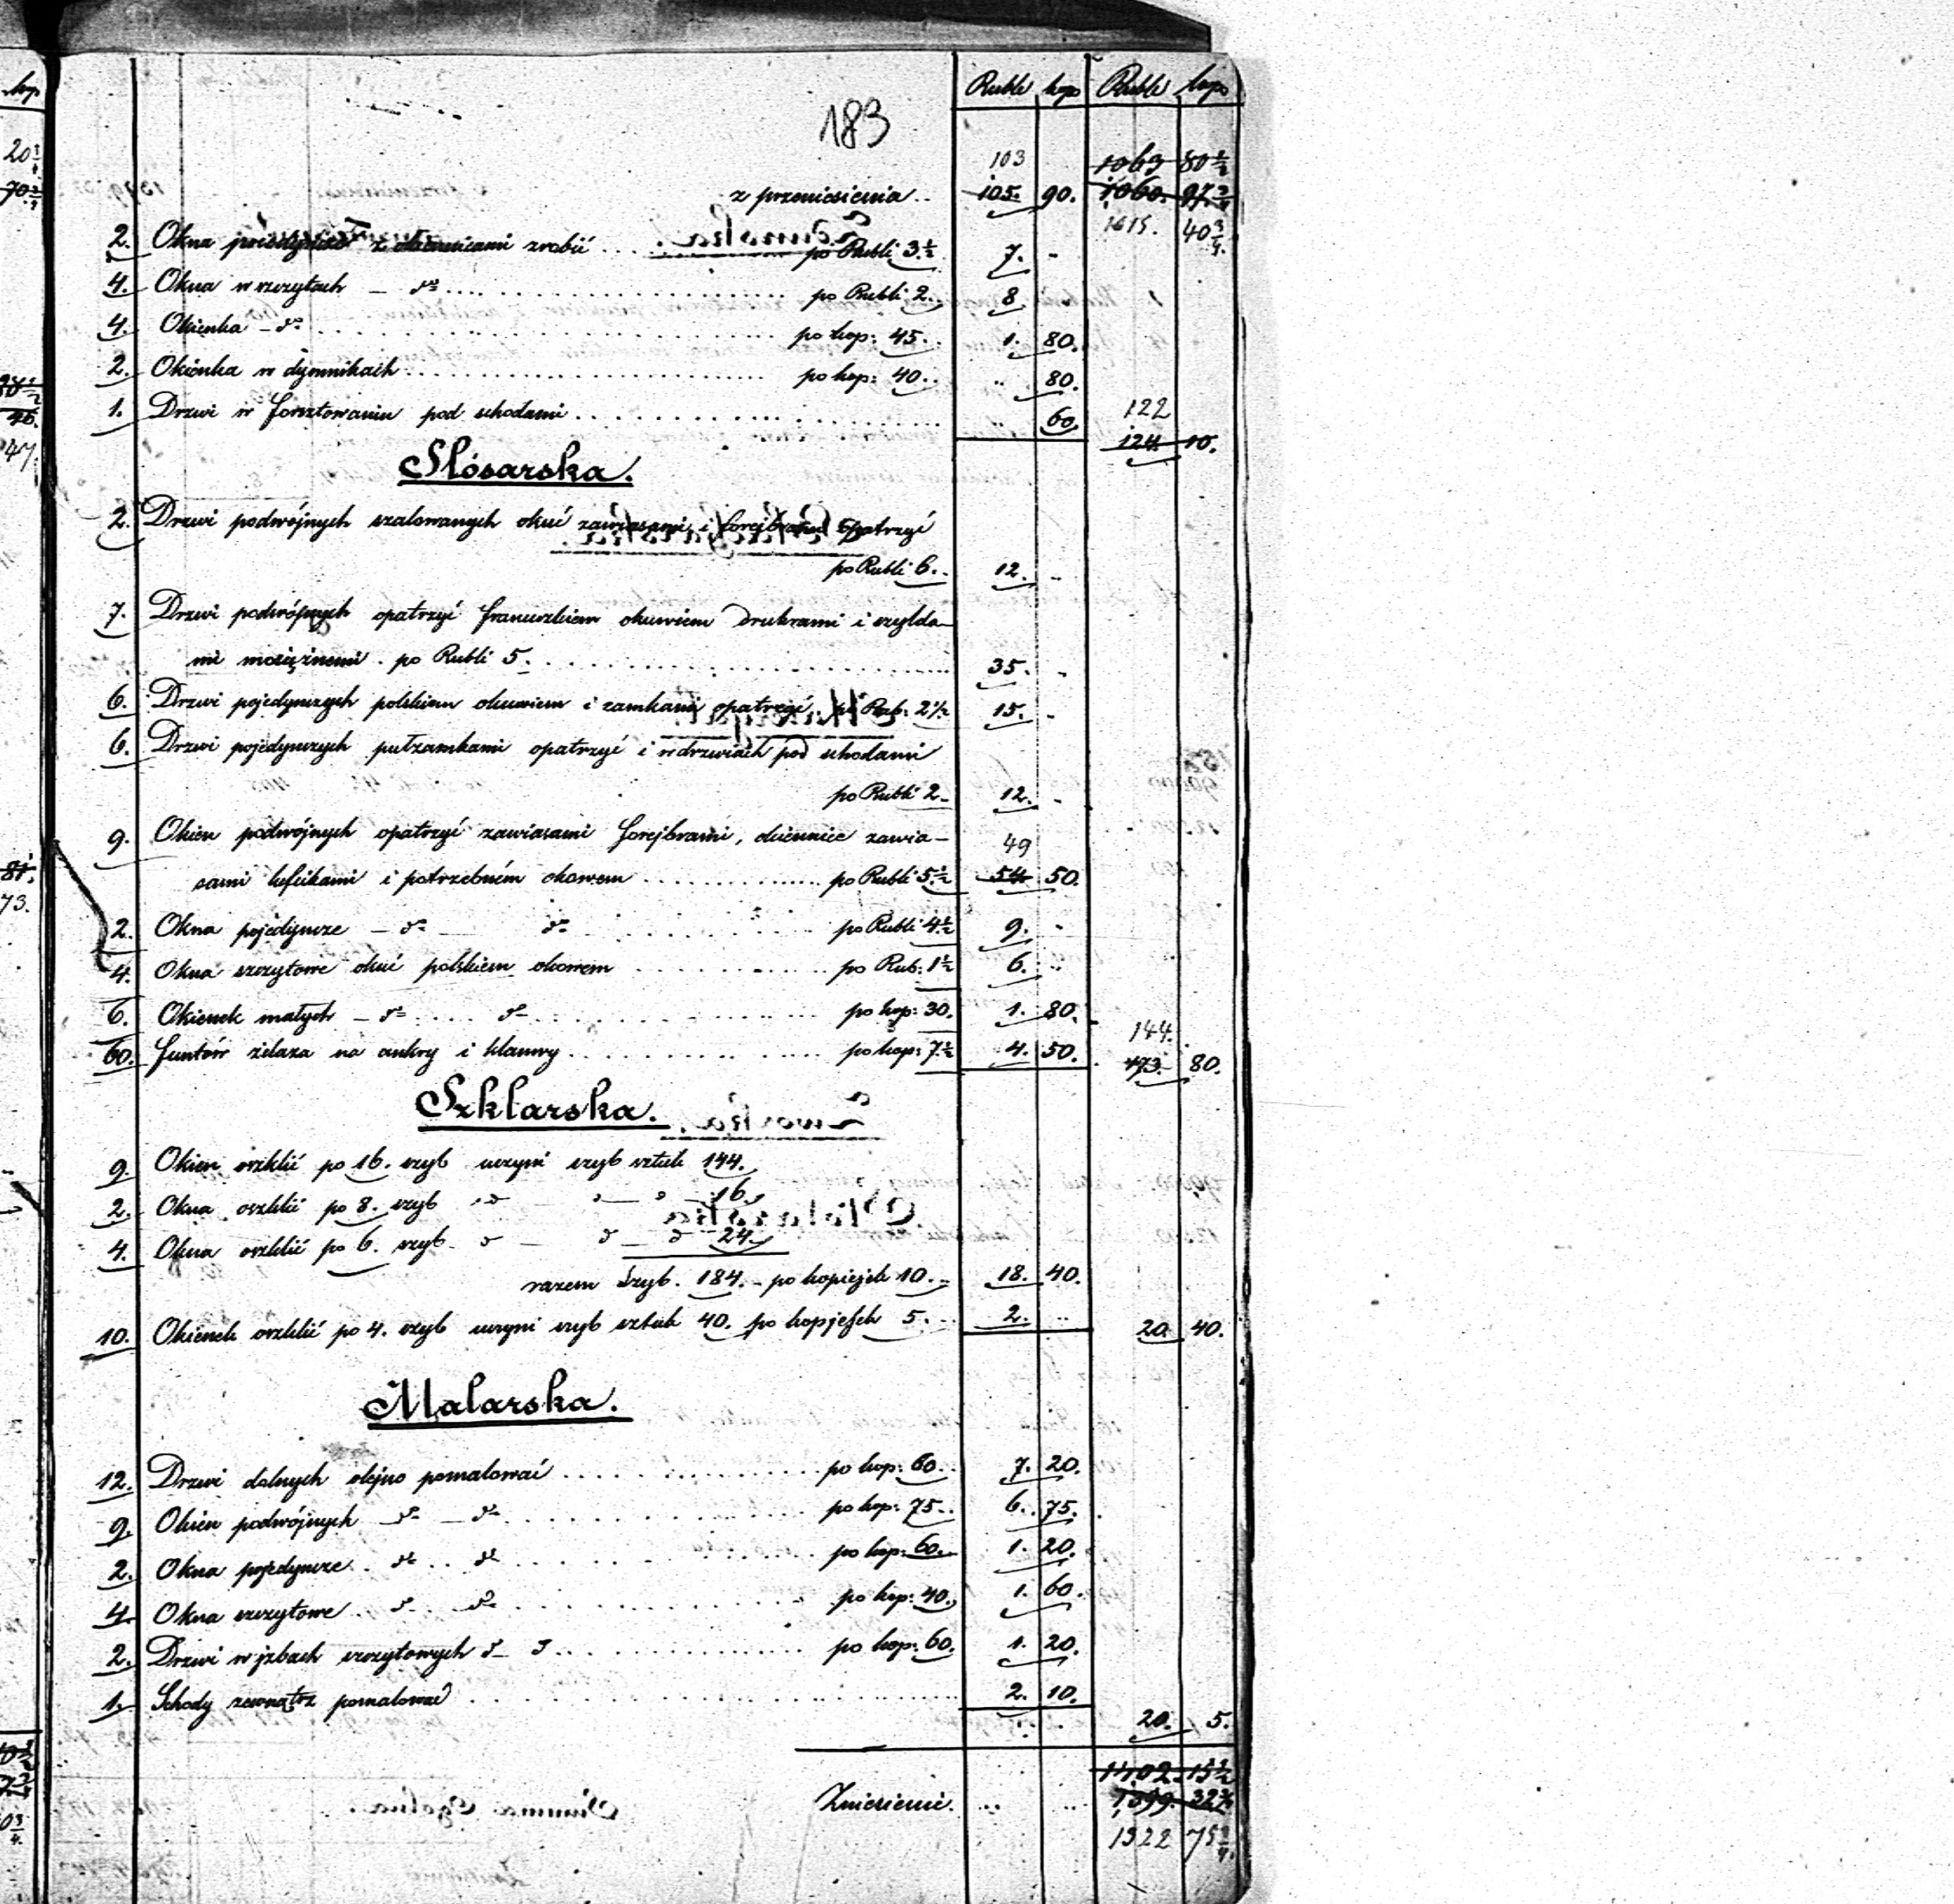 Ruble kop Ruble kop
183
103 1063 80 1/2
z przeniesienia .. 105. 90. 1060. 97 3/4
1015. 40 3/4.
2. Okna z okienicami zrobić .... po Rubli 3 1/2 7. -
4. Okna w szczytach – do .... po Rubli 2. 8 -
4. Okienka – do .... po kop: 45. 1. 80.
2. Okienka w dymnikach .... po kop: 40. .. 80.
1. Drzwi w forsztowaniu pod schodami .... .. 60. 122
124. 10.
Slósarska.
2. Drzwi podwójnych szalowanych okuć zawiasami i forejbrami opatrzyć
po Rubli 6. 12. ..
7. Drzwi podwójnych opatrzyć francuzkiem okuwiem drukrami i szylda-
mi mosiężnemi . po Rubli 5. .... 35. -
6. Drzwi pojedynczych polskiem okuwiem i zamkami opatrzyć po Rub: 2 1/2 15. -
6. Drzwi pojedynczych putzamkami opatrzyć i w drzwiach pod schodami
po Rubli 2 12. -
9. Okien podwójnych opatrzyć zawiasami forejbrami, okiennice zawia- 49
sami hefcikami i potrzebném okowem .... po Rubli 5 1/2 54 50.
2. Okna pojedyncze – do do .... po Rubli 4 1/2 9. -
4. Okna szczytowe okuć polskiem okowem .... po Rub: 1 1/2 6. ..
6. Okienek małych – do .... do .... po kop: 30. 1. 80.
144.
60. funtów żelaza na ankry i klamry .... po kop: 7 1/2 4. 50. 173. 80.
Szklarska.
9. Okien oszklić po 16. szyb uczyni szyb sztuk 144.
2. Okna oszklić po 8. szyb d – d – d – 16.
4. Okna oszklić po 6. szyb d – d – d 24.
razem szyb. 184. - po kopiejek 10. 18. 40.
10. Okienek oszklić po 4. szyb uczyni szyb sztuk 40. po kopjejek 5. 2. .. 20. 40.
Malarska.
12. Drzwi dolnych olejno pomalować .... po kop: 60. 7. 20.
9. Okien podwójnych do – do .... po kop: 75. 6. 75.
2. Okna pojedyncze . do .. do .... po kop: 60. 1. 20.
4. Okna szczytowe . do . do .... po kop: 40. 1. 60.
2. Drzwi w jzbach szczytowych d – d .... po kop: 60. 1. 20.
1. Schody zewnątrz pomalować .... 2. 10.
20. 5.
1402. 15 1/2
Zniesienie. .. .. 1399. 32 3/4
1322 75 3/4.